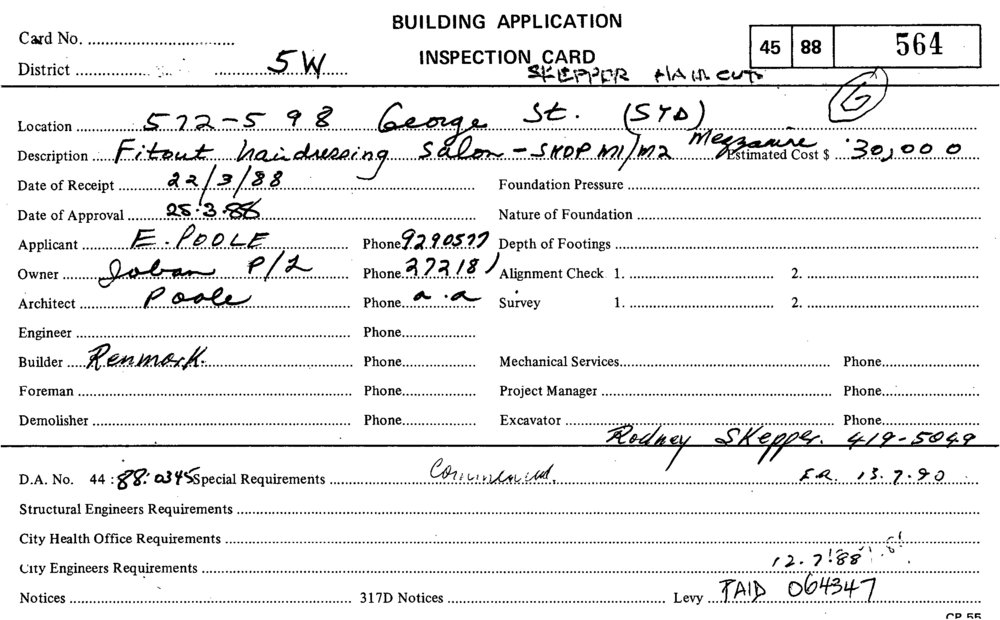 BUILDING APPLICATION
Card No.
INSPECTION CARD
45 88 564
District 5W
SKEPPER HAIR CUTS
G
Location 572-598 George St. (SYD)
Description Fitout hairdressing Salon - SHOP M1/M2 Mezzanine Estimated Cost $ 30,000
Date of Receipt 22/3/88 Foundation Pressure
Date of Approval 28.3.88 Nature of Foundation
Applicant E. POOLE Phone 9290577 Depth of Footings
Owner Joban P/L Phone 272181 Alignment Check 1. 2.
Architect Poole Phone a.a Survey 1. 2.
Engineer Phone
Builder Renmark. Phone Mechanical Services Phone
Foreman Phone Project Manager Phone
Demolisher Phone Excavator Phone
Rodney Skepper. 419-5049
D.A. No. 44 : 88: 0345 Special Requirements Commenced. 13.7.90
Structural Engineers Requirements
City Health Office Requirements
City Engineers Requirements 12.7.88
Notices 317D Notices Levy PAID 064347
CP 55